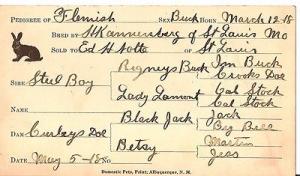 PEDIGREE OF Flemish SEX Buck BORN March 12-18
BRED BY H Kannersberg of St Louis Mo
SOLD TO Ed H Nolte of St Louis
Rigneys Buck Ion Buck
SIRE Steel Boy Crooks Doe
Lady Lamont Cal Stock
Cal Stock
NAME Black Jack Jack
DAM Curleys Doe Big Bell
Betsy Martin
DATE May 5-18 Jeas
Domestic Pets, Print, Albuquerque, N. M.